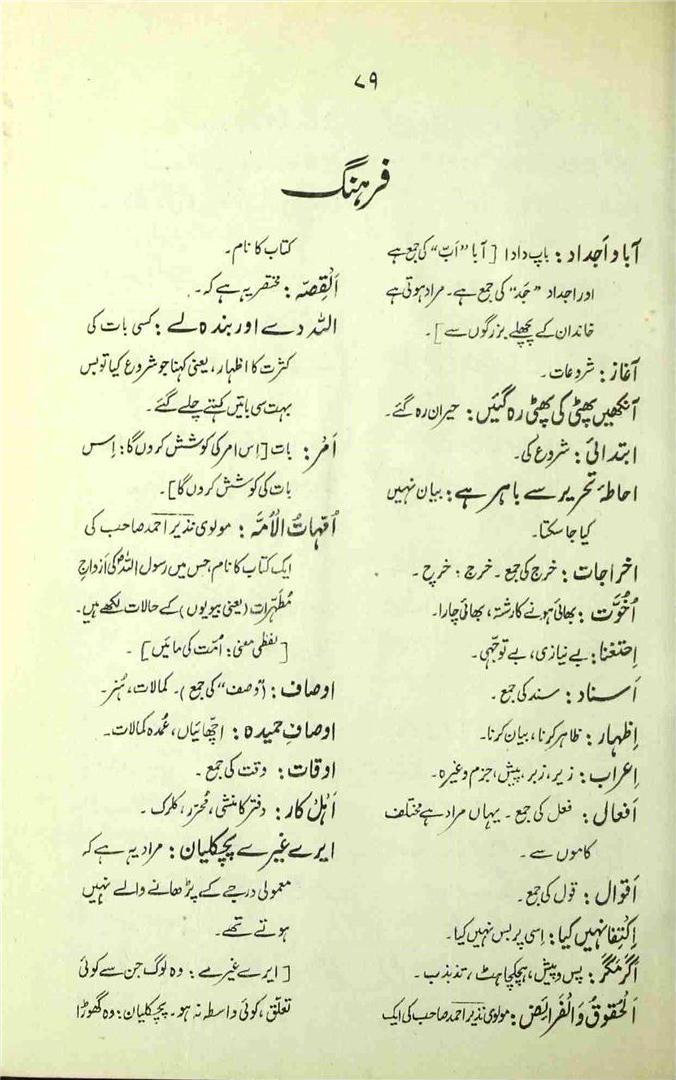 ۷۹
فرہنگ
آبا و اَجداد : باپ دادا [ آبا ”اَبّ“ کی جمع ہے
اور اجداد ”جَد“ کی جمع ہے۔ مراد ہوتی ہے
خاندان کے پچھلے بزرگوں سے ]۔
آغاز : شروعات۔
آنکھیں پھٹی کی پھٹی رہ گئیں : حیران رہ گئے۔
ابتدائی : شروع کی۔
احاطۂ تحریر سے باہر ہے : بیان نہیں
کیا جا سکتا۔
اخراجات : خرچ کی جمع۔ خرج : خرچ۔
اُخُوَّت : بھائی ہونے کا رشتہ، بھائی چارا۔
اِستغنا : بے نیازی، بے توجّہی۔
اَسناد : سند کی جمع۔
اِظہار : ظاہر کرنا، بیان کرنا۔
اِعراب : زیر، زبر، پیش، جزم وغیرہ۔
اَفعال : فعل کی جمع۔ یہاں مراد ہے مختلف
کاموں سے۔
اَقوال : قول کی جمع۔
اِکتِفا نہیں کیا : اِسی پر بس نہیں کیا۔
اَگر مَگر : پس و پیش، ہچکچاہٹ، تذبذب۔
اَلحُقوقُ وَالفَرائِض : مولوی نذیر احمد صاحب کی ایک
کتاب کا نام۔
اَلقِصّہ : مختصر یہ ہے کہ۔
اللہ دے اور بندہ لے : کسی بات کی
کثرت کا اظہار، یعنی کہنا جو شروع کیا تو بس
بہت سی باتیں کہتے چلے گئے۔
اَمر : بات [اِس امر کی کوشش کروں گا : اِس
بات کی کوشش کروں گا]۔
اُمّہاتُ الاُمَّہ : مولوی نذیر احمد صاحب کی
ایک کتاب کا نام، جس میں رسول اللہؐ کی اَزواجِ
مُطَہّرات (یعنی بیویوں) کے حالات لکھے ہیں۔
[لفظی معنی : اُمّت کی مائیں]۔
اوصاف : (”وصف“ کی جمع)۔ کمالات، ہُنر۔
اوصافِ حمیدہ : اچّھائیاں، عُمدہ کمالات۔
اوقات : وقت کی جمع۔
اَہل کار : دفتر کا منشی، مُحرّر، کلرک۔
ایرے غیرے پچکلیان : مراد یہ ہے کہ
معمولی درجے کے پڑھانے والے نہیں
ہوتے تھے۔
[ایرے غیرے : وہ لوگ جن سے کوئی
تعلّق، کوئی واسطہ نہ ہو۔ پچکلیان : وہ گھوڑا